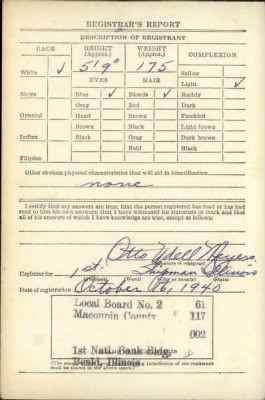 REGISTRAR'S REPORT
DESCRIPTION OF REGISTRANT
RACE HEIGHT (Approx.) WEIGHT (Approx.) COMPLEXION
White ✓ 5' 9" 175 Sallow
EYES HAIR Light ✓
Negro Blue ✓ Blonde ✓ Ruddy
Gray Red Dark
Oriental Hazel Brown Freckled
Brown Black Light brown
Indian Black Gray Dark brown
Bald Black
Filipino
Other obvious physical characteristics that will aid in identification
none
I certify that my answers are true; that the person registered has read or has had
read to him his own answers; that I have witnessed his signature or mark and that
all of his answers of which I have knowledge are true, except as follows:
Otto
(Signature of registrar)
Registrar for 1st Shipman Illinois
(City or county) (State)
Date of registration October 16, 1940
Local Board No. 2 61
Macoupin County 117
002
1st Natl. Bank Bldg.
Benld, Illinois